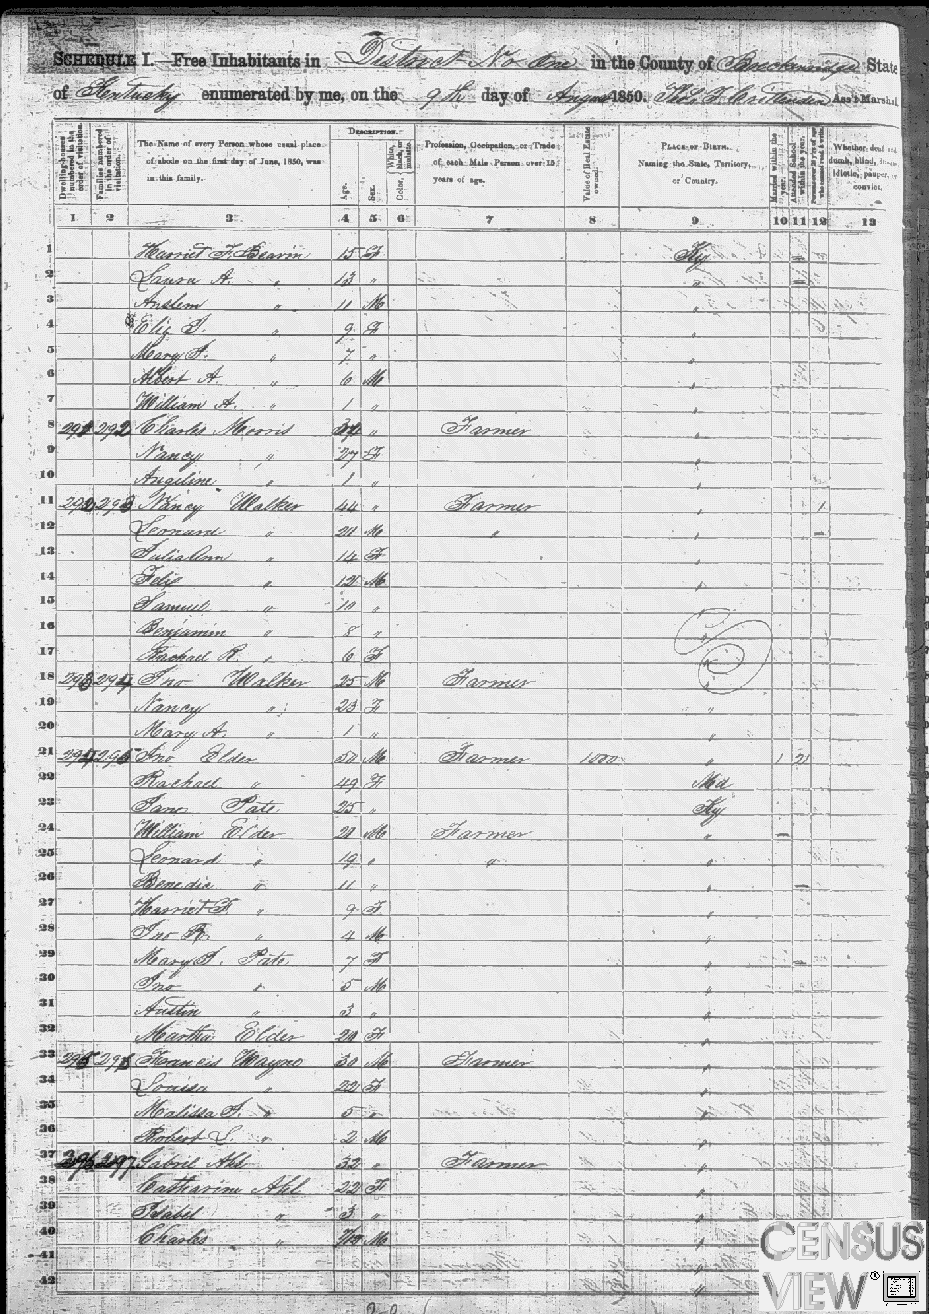 SCHEDULE I.—Free Inhabitants in District No One in the County of Breckenridge State
of Kentucky enumerated by me, on the 9th day of August 1850. Ass't Marshal
Dwelling-houses numbered in the order of visitation.
Families numbered in the order of visitation.
The Name of every Person whose usual place of abode on the first day of June, 1850, was in this family.
DESCRIPTION.
Age.
Sex.
Color, White, black, or mulatto.
Profession, Occupation, or Trade of each Male Person over 15 years of age.
Value of Real Estate owned.
PLACE OF BIRTH. Naming the State, Territory, or Country.
Married within the year.
Attended School within the year.
Whether deaf and dumb, blind, insane, idiotic, pauper, or convict.
1 2 3 4 5 6 7 8 9 10 11 12 13
1 Harriet F. Beavin 15 F Ky
2 Laura A. " 13 " "
3 Anslem " 11 M "
4 Eliz J. " 9 F "
5 Mary J. " 7 " "
6 Albert A. " 6 M "
7 William A. " 1 " "
8 291 292 Charles Morris " Farmer "
9 Nancy " 27 F "
10 Angeline " 1 " "
11 292 293 Nancy Walker 44 " Farmer " 1
12 Leonard " 21 M " "
13 Julia Ann " 14 F "
14 Felix " 12 M "
15 Samuel " 10 " "
16 Benjamin " 8 " "
17 Rachael R. " 6 F "
18 293 294 Jno Walker 25 M Farmer "
19 Nancy " 23 F "
20 Mary A. " 1 " "
21 294 295 Jno Elder 50 M Farmer "
22 Rachael " 49 F Md
23 Jane Pate 25 " Ky
24 William Elder 21 M Farmer "
25 Leonard " 19 " " "
26 Benedia " 11 " "
27 Harriet F. " 9 F "
28 Jno R. " 4 M "
29 Mary J. Pate 7 F "
30 Jno " 5 M "
31 Austin " 3 " "
32 Martha Elder F "
33 295 296 Francis Wayne 30 M Farmer "
34 Louisa " 22 F "
35 Malissa J. " 5 " "
36 Robert L. " 2 M "
37 296 297 Gabril Ahl 32 " Farmer "
38 Catharine Ahl 22 F "
39 Isabel " 3 " "
40 Charles " M "
41
42
CENSUS
VIEW®